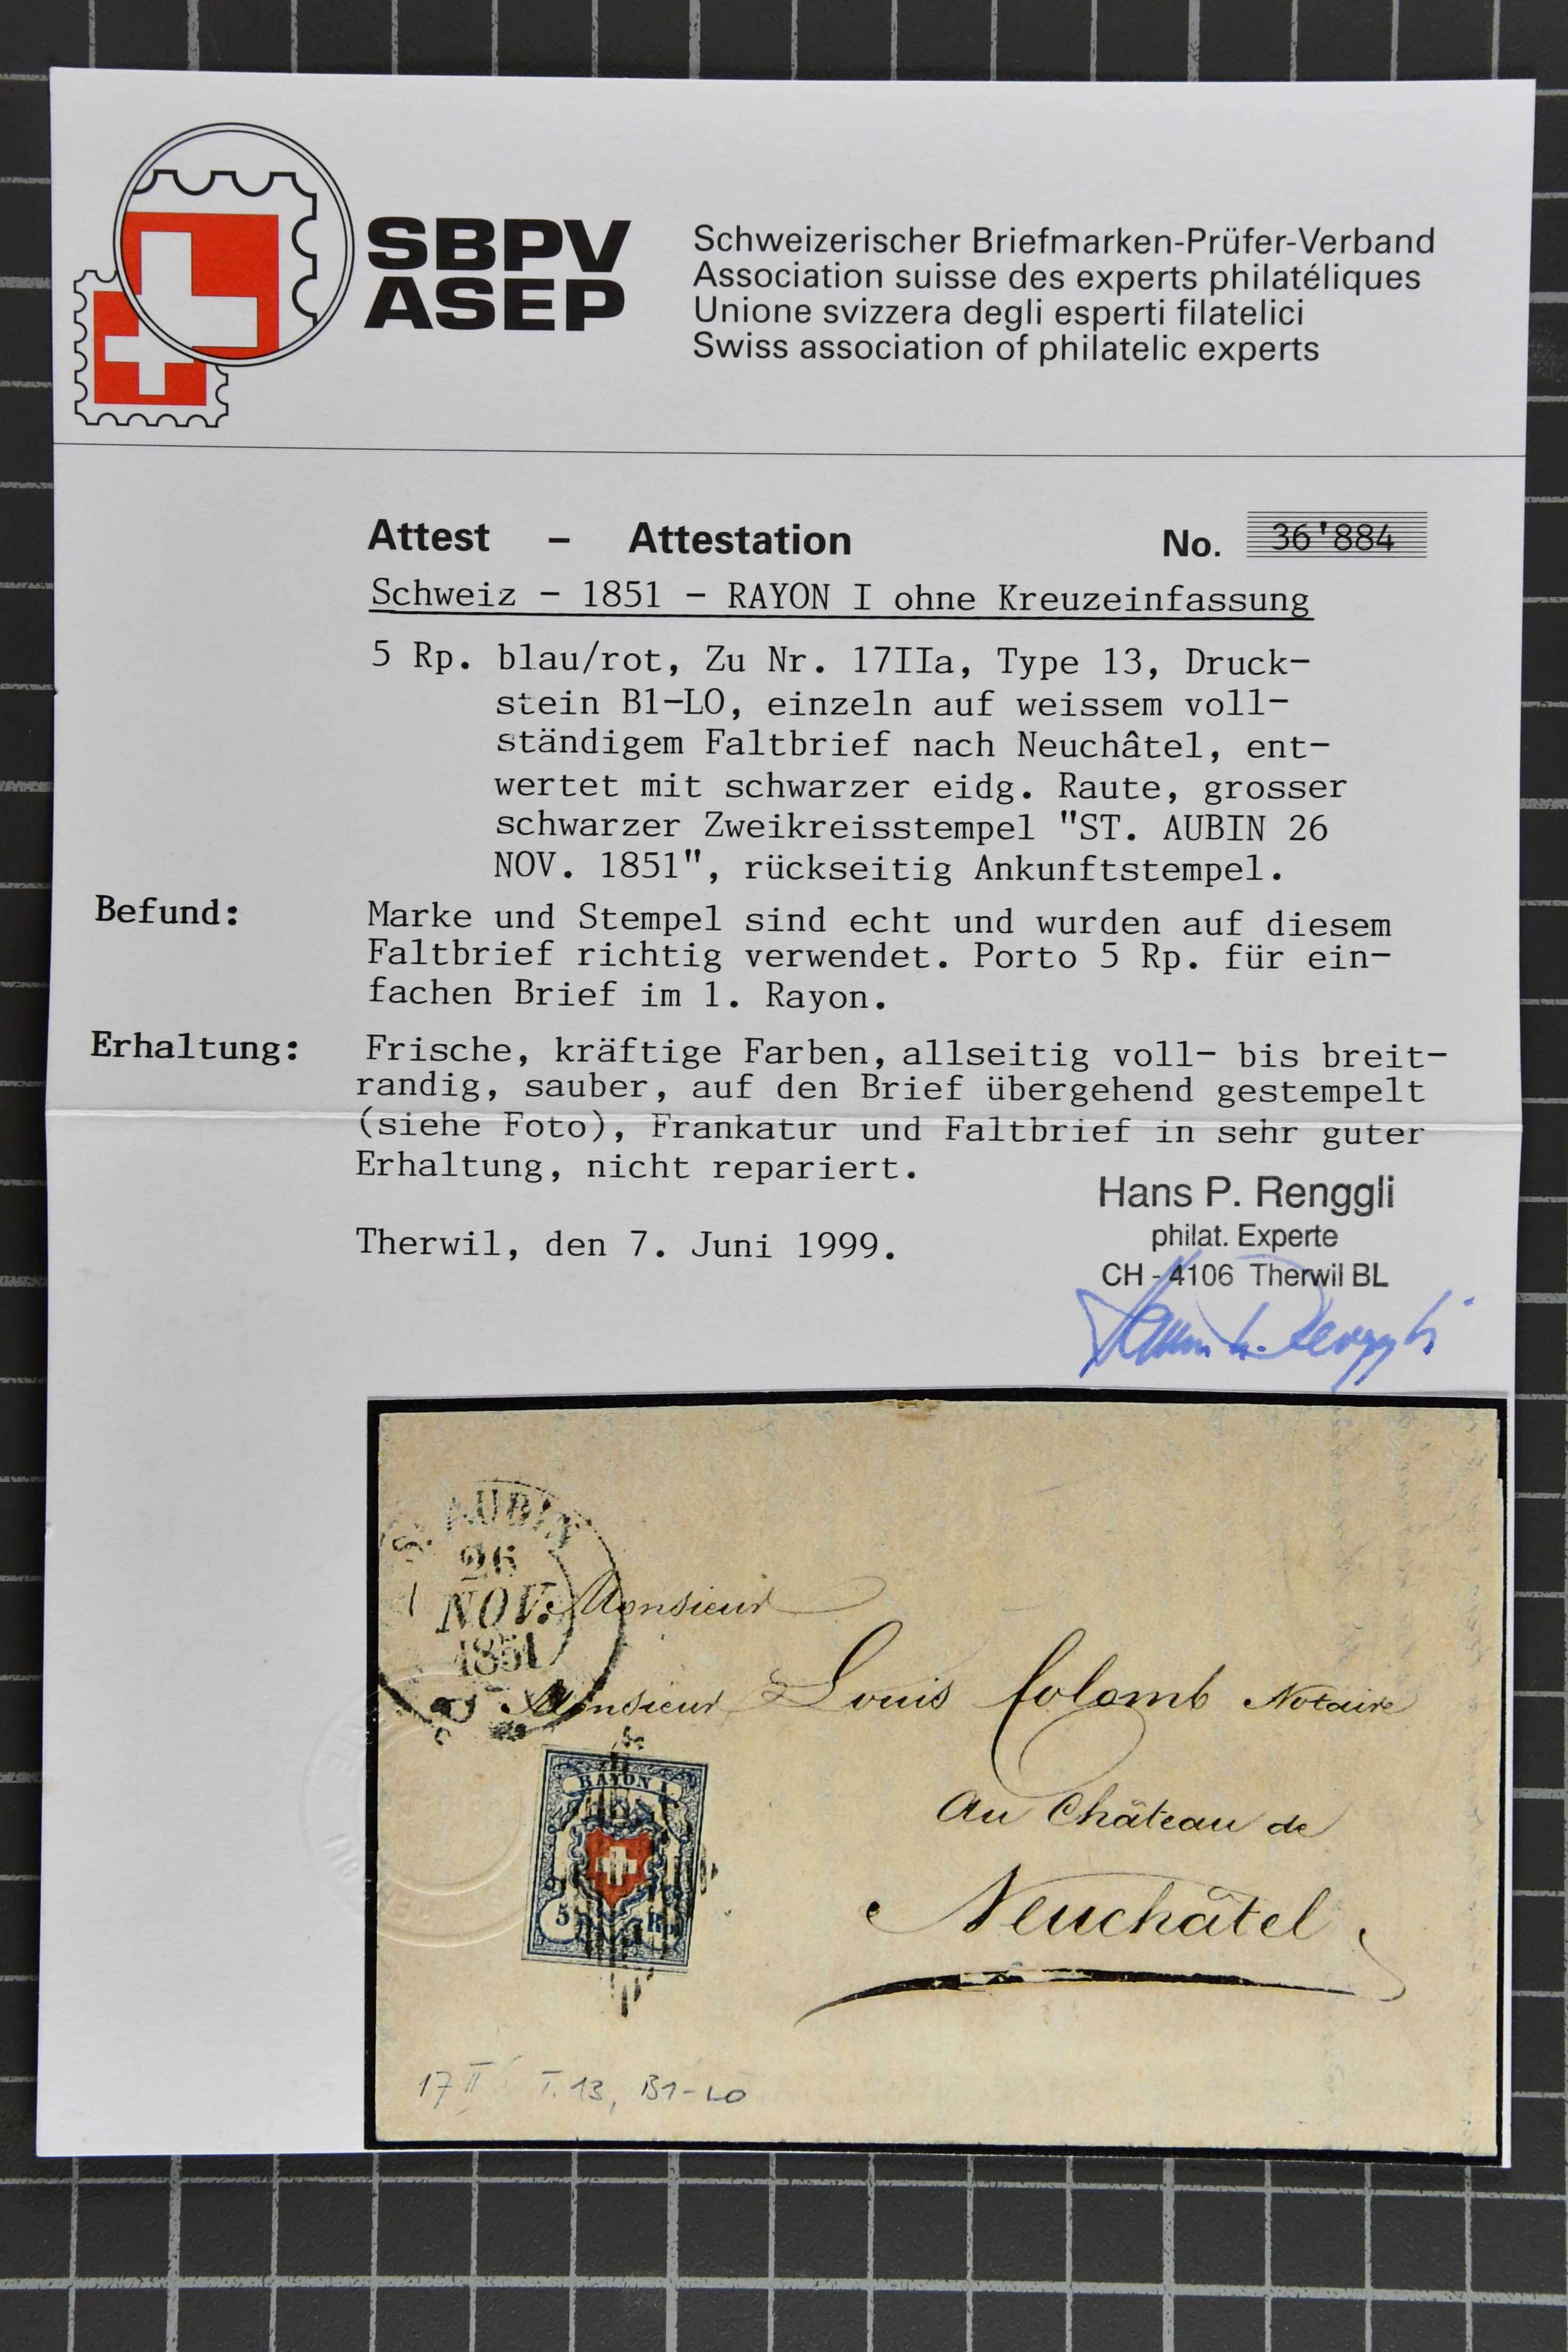 SBPV
ASEP
Schweizerischer Briefmarken-Prüfer-Verband
Association suisse des experts philatéliques
Unione svizzera degli esperti filatelici
Swiss association of philatelic experts
Attest – Attestation No. 36'884
Schweiz - 1851 - RAYON I ohne Kreuzeinfassung
5 Rp. blau/rot, Zu Nr. 17IIa, Type 13, Druck-
stein B1-LO, einzeln auf weissem voll-
ständigem Faltbrief nach Neuchâtel, ent-
wertet mit schwarzer eidg. Raute, grosser
schwarzer Zweikreisstempel "ST. AUBIN 26
NOV. 1851", rückseitig Ankunftstempel.
Befund: Marke und Stempel sind echt und wurden auf diesem
Faltbrief richtig verwendet. Porto 5 Rp. für ein-
fachen Brief im 1. Rayon.
Erhaltung: Frische, kräftige Farben, allseitig voll- bis breit-
randig, sauber, auf den Brief übergehend gestempelt
(siehe Foto), Frankatur und Faltbrief in sehr guter
Erhaltung, nicht repariert.
Therwil, den 7. Juni 1999.
Hans P. Renggli
philat. Experte
CH - 4106 Therwil BL
AUBIN
26
NOV:
1851
Monsieur
Monsieur Louis Colomb Notaire
Au Château de
Neuchâtel
RAYON I
5 Rp
17 II T. 13, B1-LO